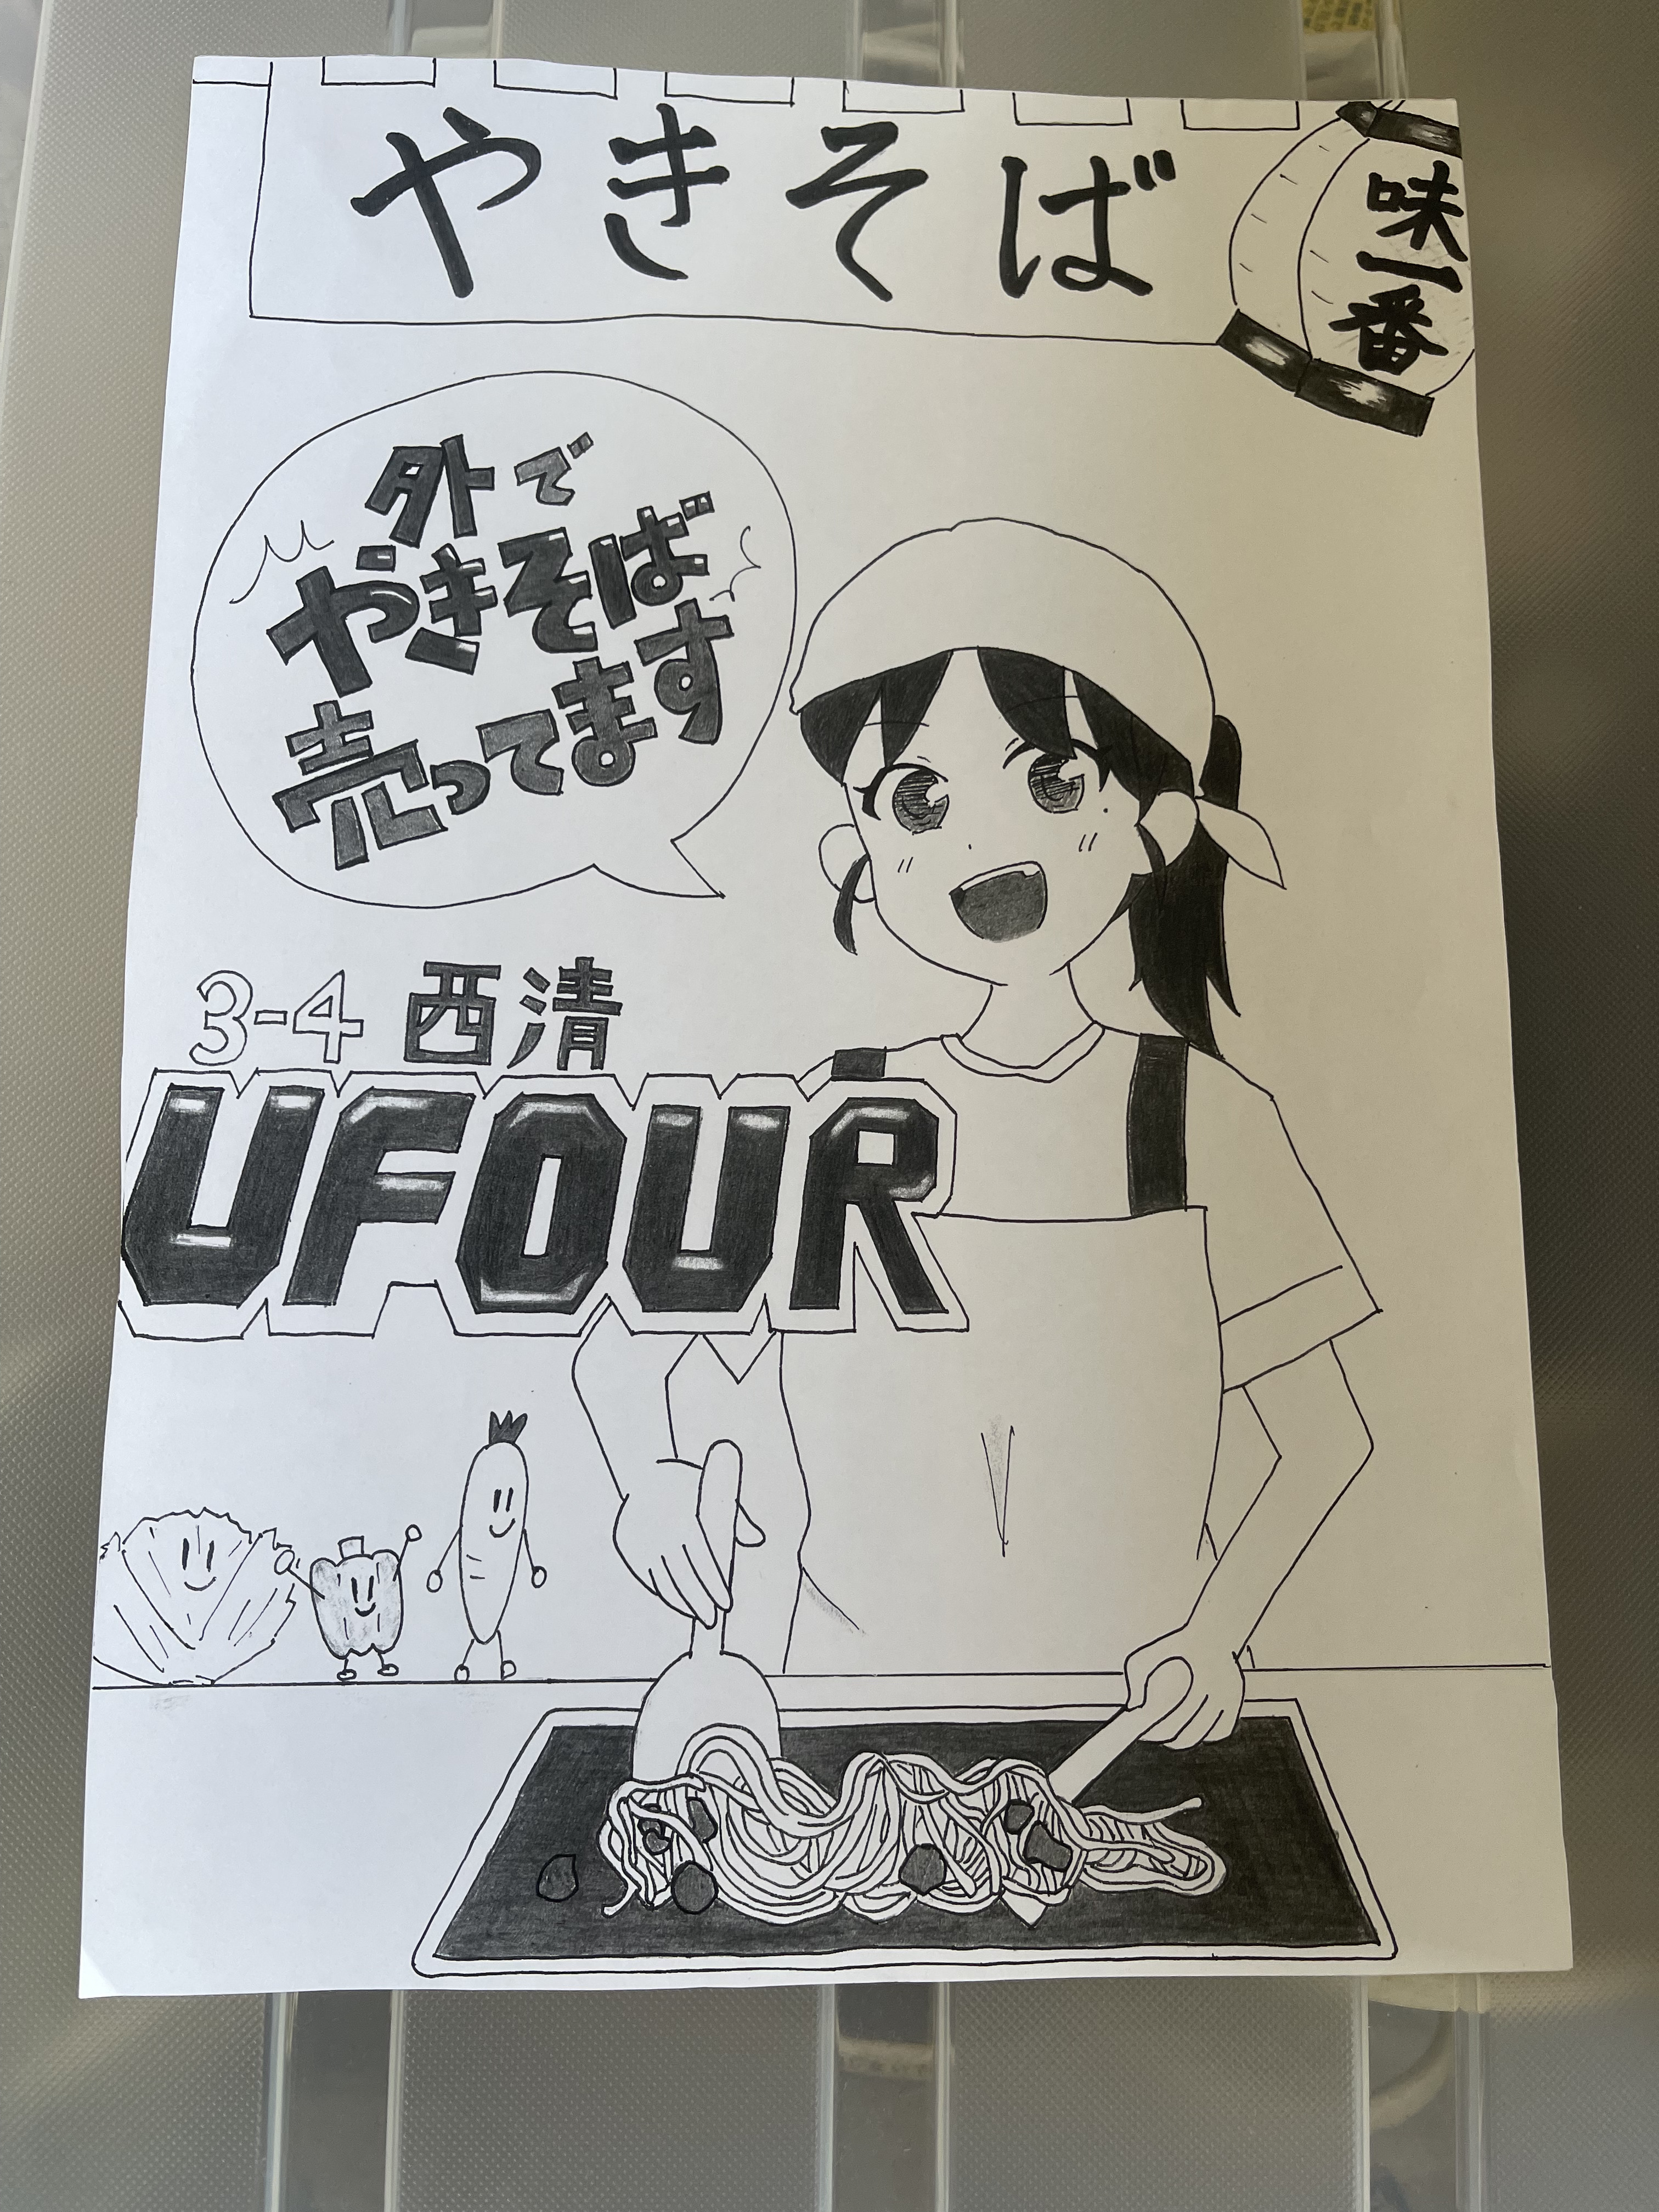 やきそば
味一番
外で
やきそば
売ってます
3-4 西清
UFOUR